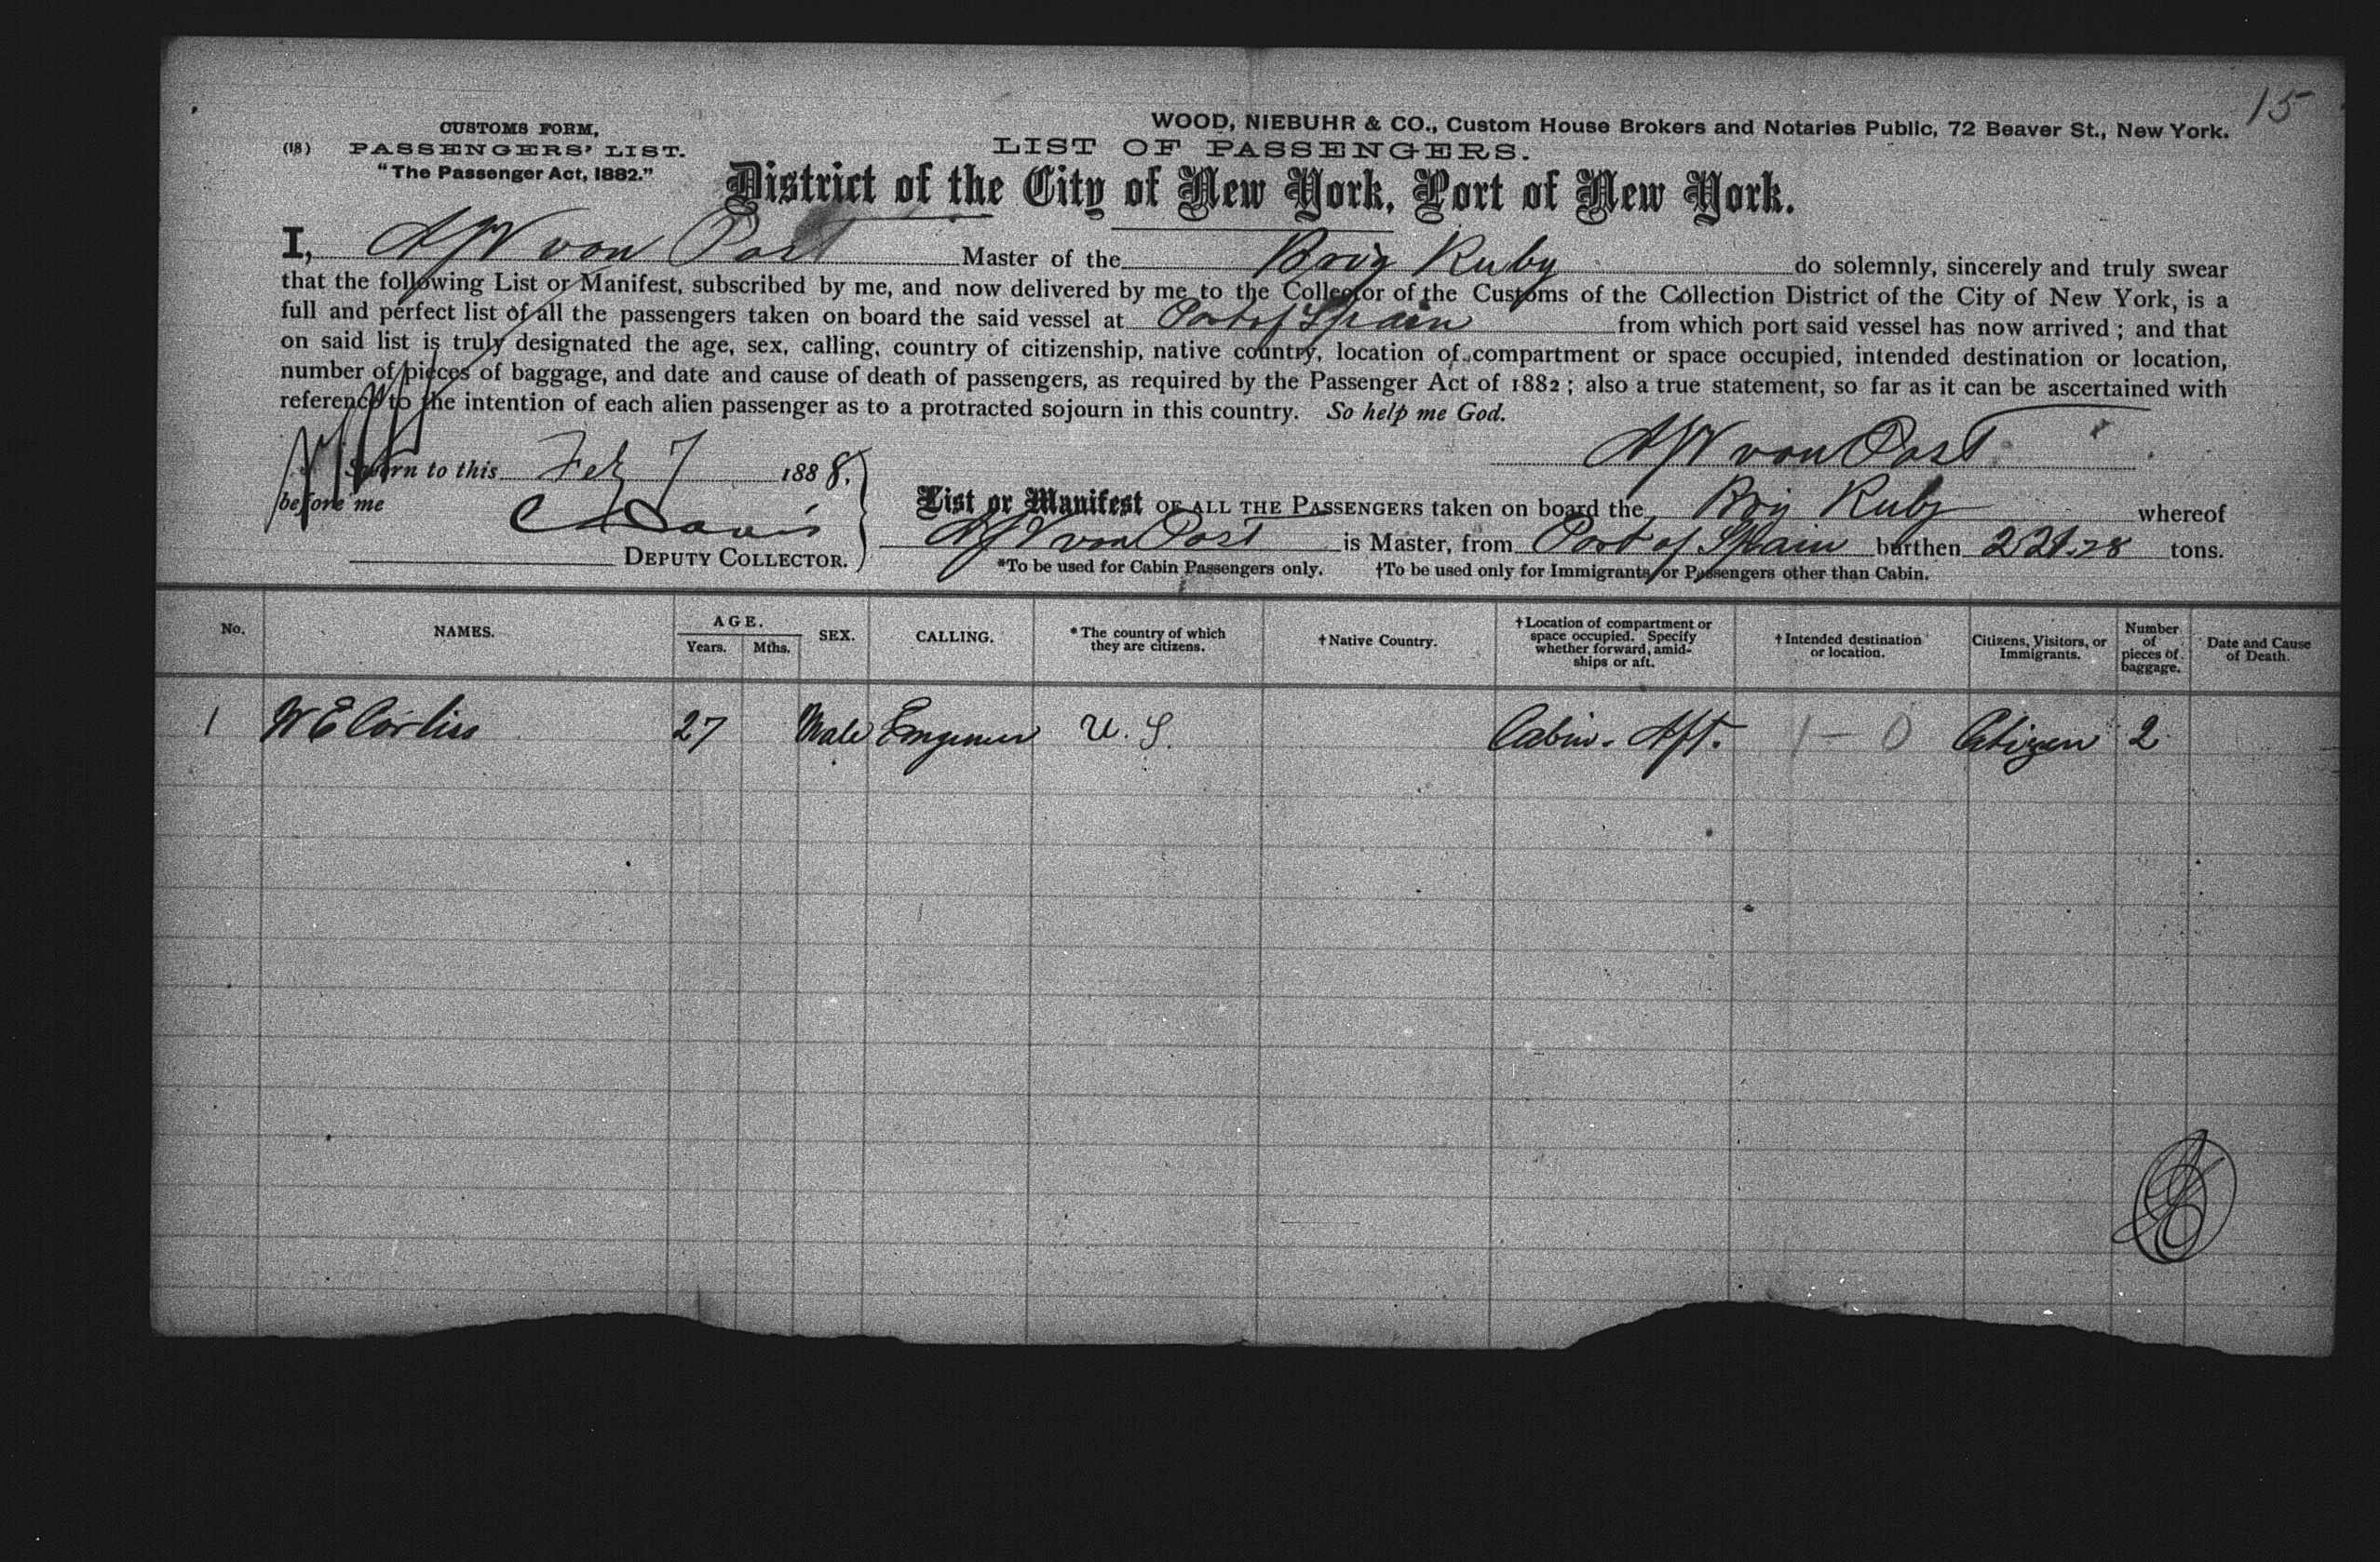 15
WOOD, NIEBUHR & CO., Custom House Brokers and Notaries Public, 72 Beaver St., New York.
CUSTOMS FORM,
(18) PASSENGERS' LIST.
"The Passenger Act, 1882."
LIST OF PASSENGERS.
District of the City of New York, Port of New York.
I, A W von Post Master of the Brig Ruby do solemnly, sincerely and truly swear
that the following List or Manifest, subscribed by me, and now delivered by me to the Collector of the Customs of the Collection District of the City of New York, is a
full and perfect list of all the passengers taken on board the said vessel at Port of Spain from which port said vessel has now arrived; and that
on said list is truly designated the age, sex, calling, country of citizenship, native country, location of compartment or space occupied, intended destination or location,
number of pieces of baggage, and date and cause of death of passengers, as required by the Passenger Act of 1882; also a true statement, so far as it can be ascertained with
reference to the intention of each alien passenger as to a protracted sojourn in this country. So help me God.
A W von Post
Sworn to this Feb 7 1888.
before me
Davis
DEPUTY COLLECTOR.
List or Manifest OF ALL THE PASSENGERS taken on board the Brig Ruby whereof
A W von Post is Master, from Port of Spain burthen tons.
*To be used for Cabin Passengers only. †To be used only for Immigrants or Passengers other than Cabin.
No. NAMES. AGE. Years. Mths. SEX. CALLING. *The country of which they are citizens. †Native Country. †Location of compartment or space occupied. Specify whether forward, amidships or aft. †Intended destination or location. Citizens, Visitors, or Immigrants. Number of pieces of baggage. Date and Cause of Death.
1 W E Corliss 27 Male Engineer U. S. Cabin. Aft. 1 - 0 Citizen 2